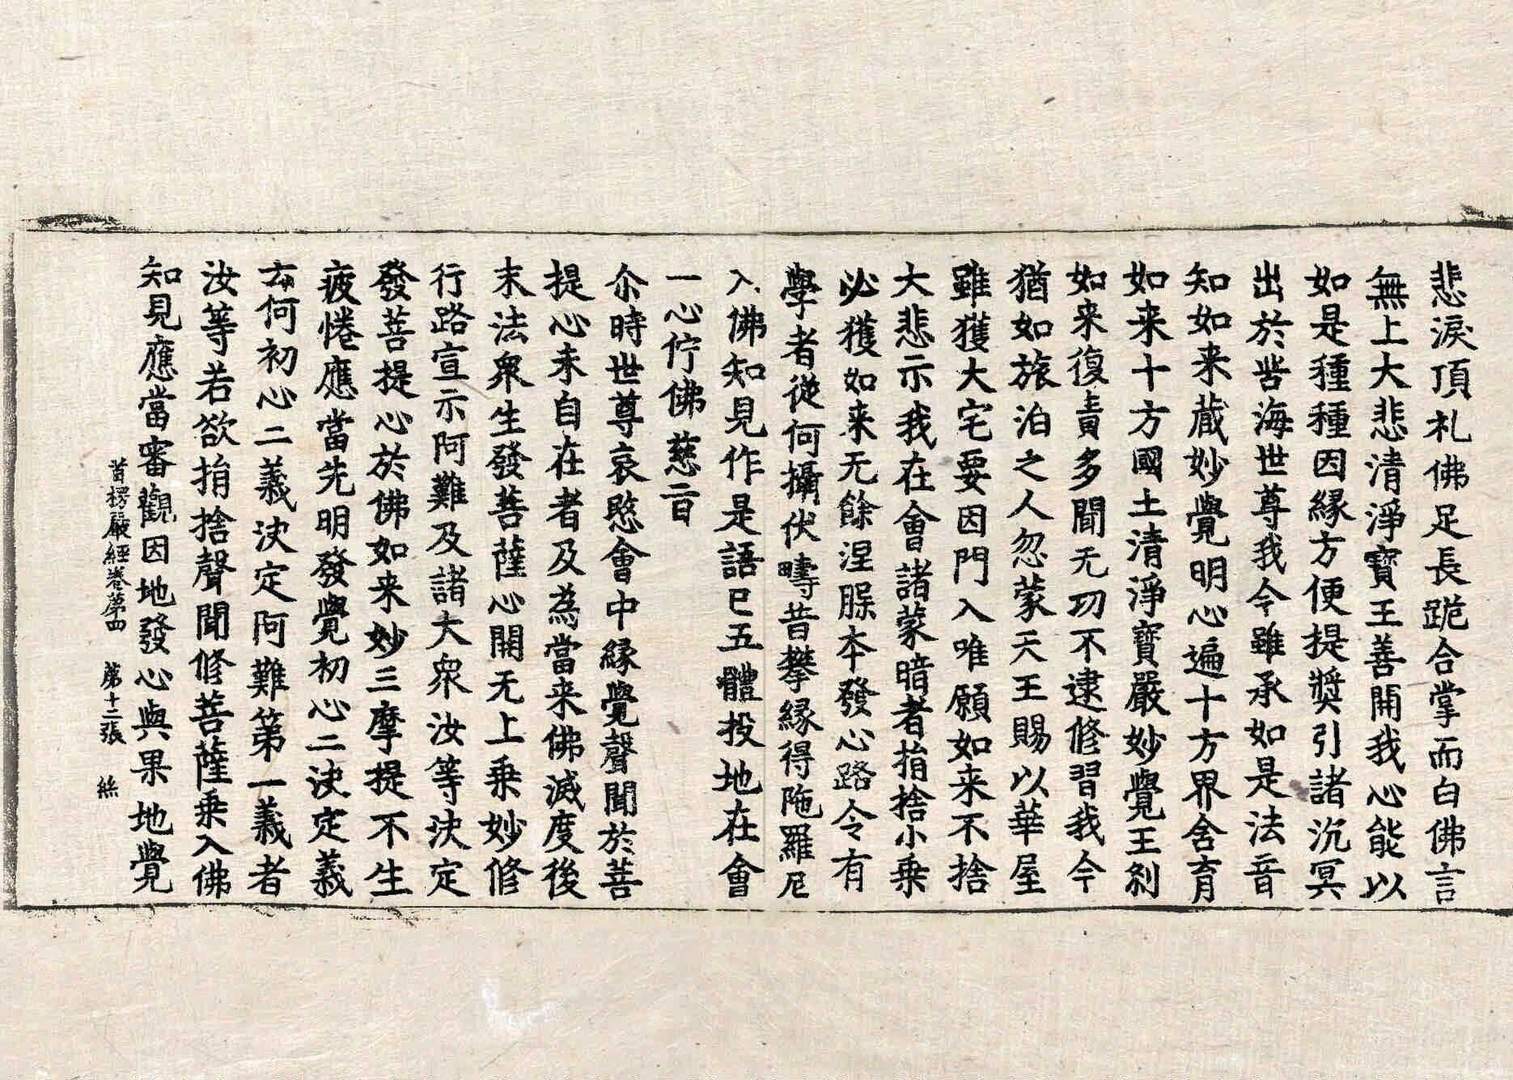 悲淚頂札佛足長跪合掌而白佛言
無上大悲清淨寶王善開我心能以
如是種種因緣方便提獎引諸沉冥
出於苦海世尊我今雖承如是法音
知如来蔵妙覺明心遍十方界含育
如来十方國土清淨寶嚴妙覺王剎
如来復責多聞无功不逮修習我今
猶如旅泊之人忽蒙天王賜以華屋
雖獲大宅要因門入唯願如来不捨
大悲示我在會諸蒙暗者捐捨小乗
必獲如来无餘涅脲本發心路令有
學者從何攝伏疇昔攀緣得陁羅尼
入佛知見作是語已五體投地在會
一心佇佛慈旨
尒時世尊哀愍會中緣覺聲聞於菩
提心未自在者及為當来佛滅度後
末法衆生發菩薩心開无上乗妙修
行路宣示阿難及諸大衆汝等決定
發菩提心於佛如来妙三摩提不生
疲惓應當先明發覺初心二決定義
云何初心二義決定阿難第一義者
汝等若欲捐捨聲聞修菩薩乗入佛
知見應當審觀因地發心與果地覺
首楞嚴經卷第四 第十二張 絲